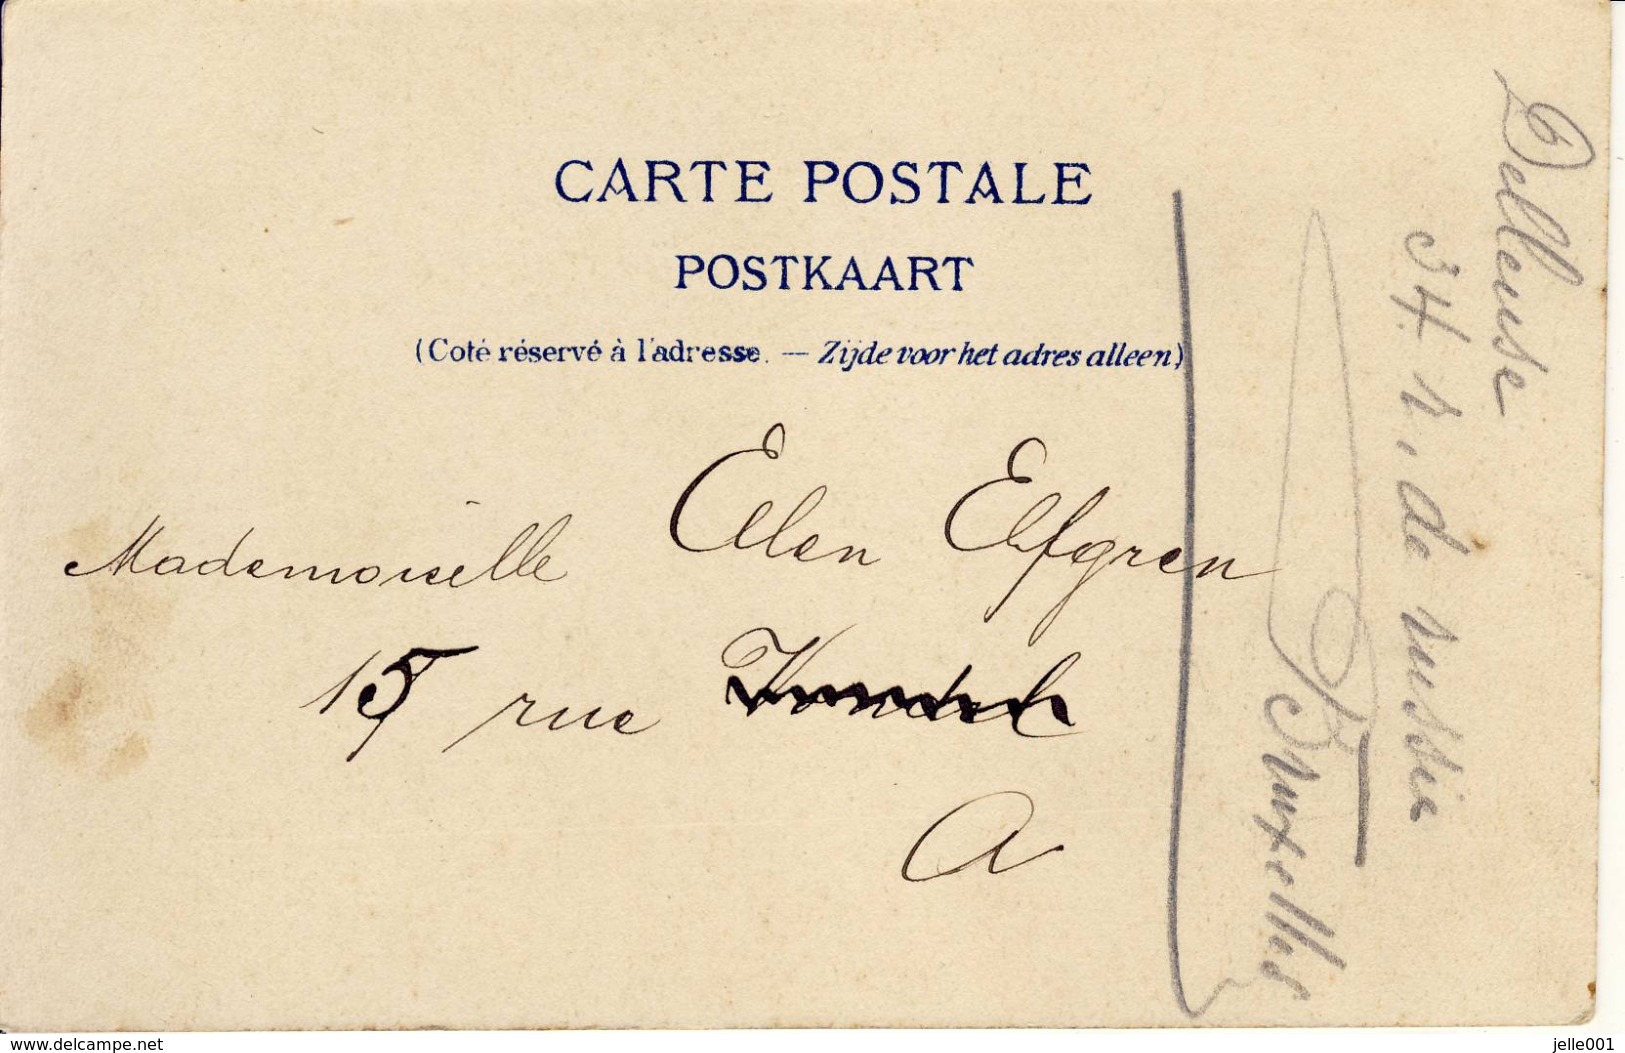 CARTE POSTALE
POSTKAART
(Coté réservé à l'adresse. — Zijde voor het adres alleen)
Mademoiselle Ellen Elfgren
15 rue Vondel
A
Delleuse
34 r. de russie
Bruxelles
www.delcampe.net
jelle001